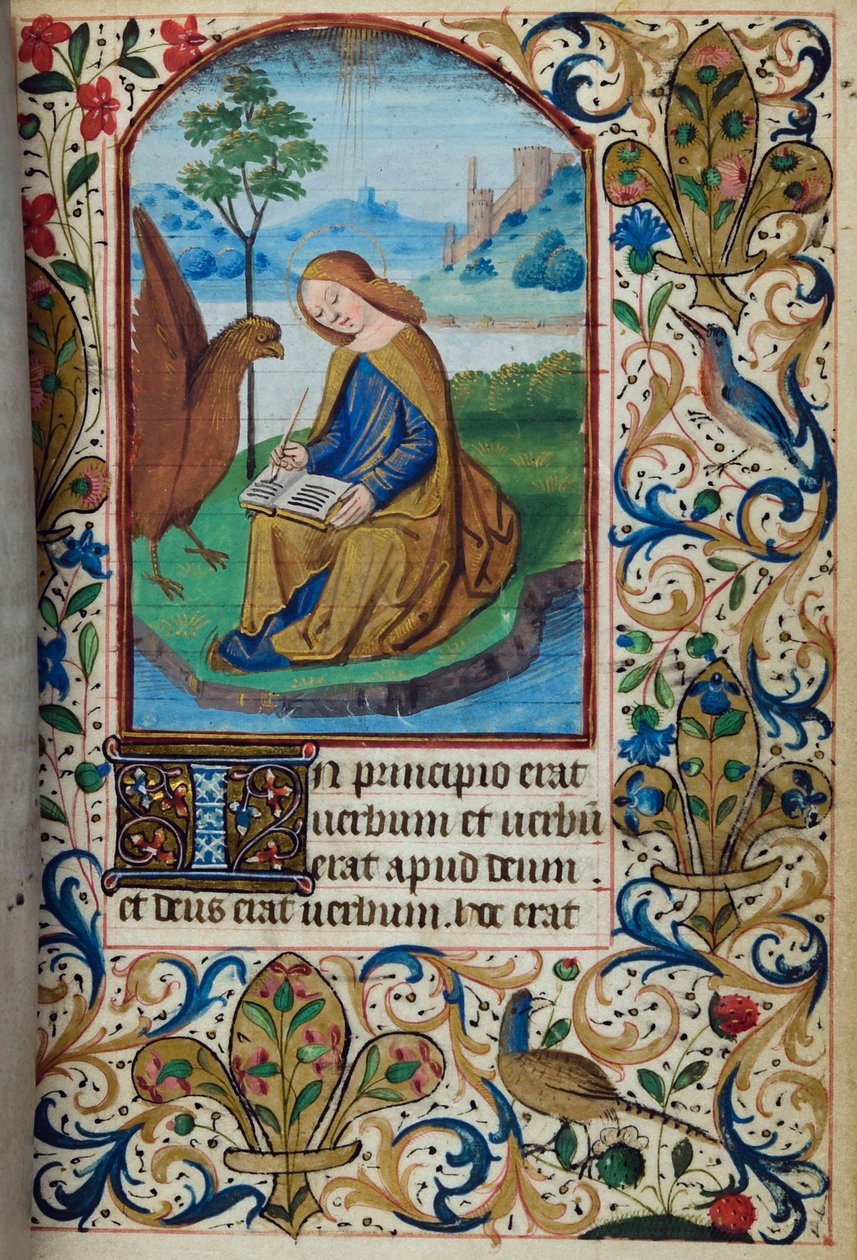 In principio erat
uerbum et uerbū
erat apud deum.
et deus erat uerbum. hoc erat